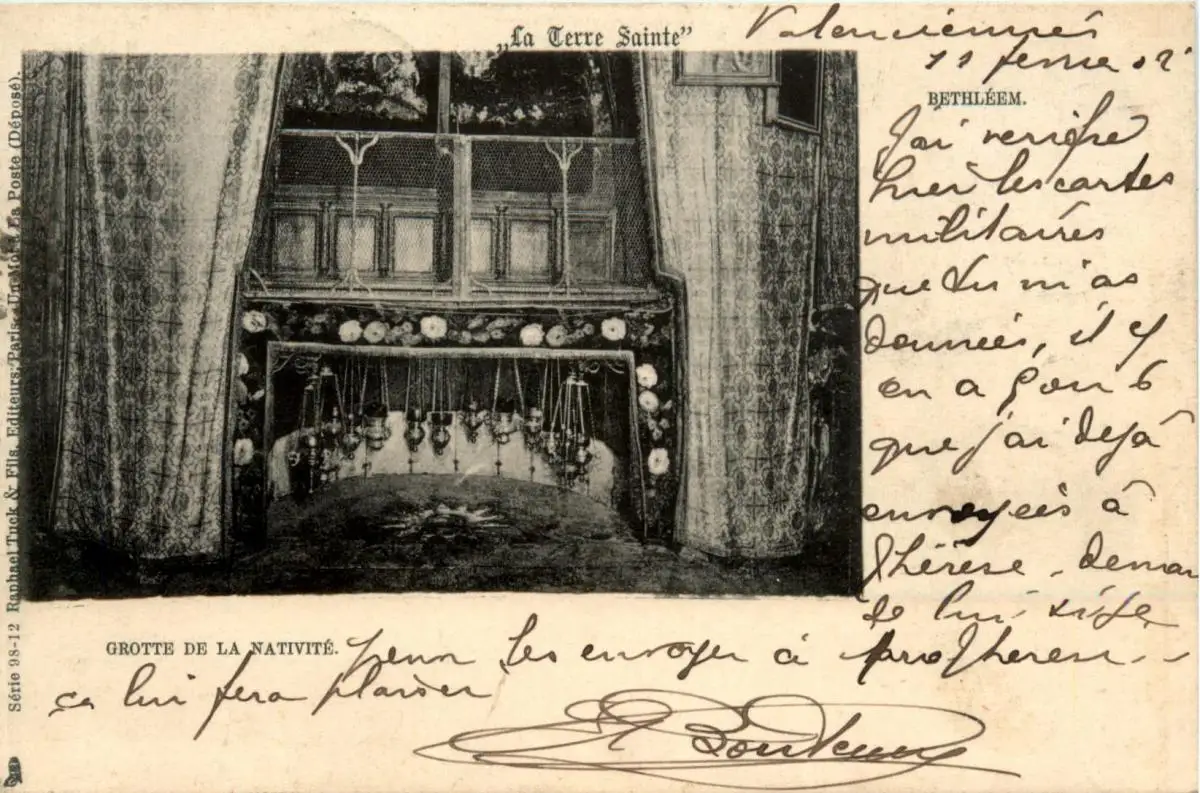 „La Terre Sainte”
Valenciennes
11
BETHLÉEM.
J'ai verifié
hier les cartes
militaires
que tu m'as
données, il y
en a 6
que j'ai dejà
envoyées à
Thérèse, deman
de lui
GROTTE DE LA NATIVITÉ.
pour les envoyer à
ça lui fera plaisir
Série 98-12 Raphael Tuck & Fils, Editeurs, Paris. Un Mot à la Poste (Déposé).